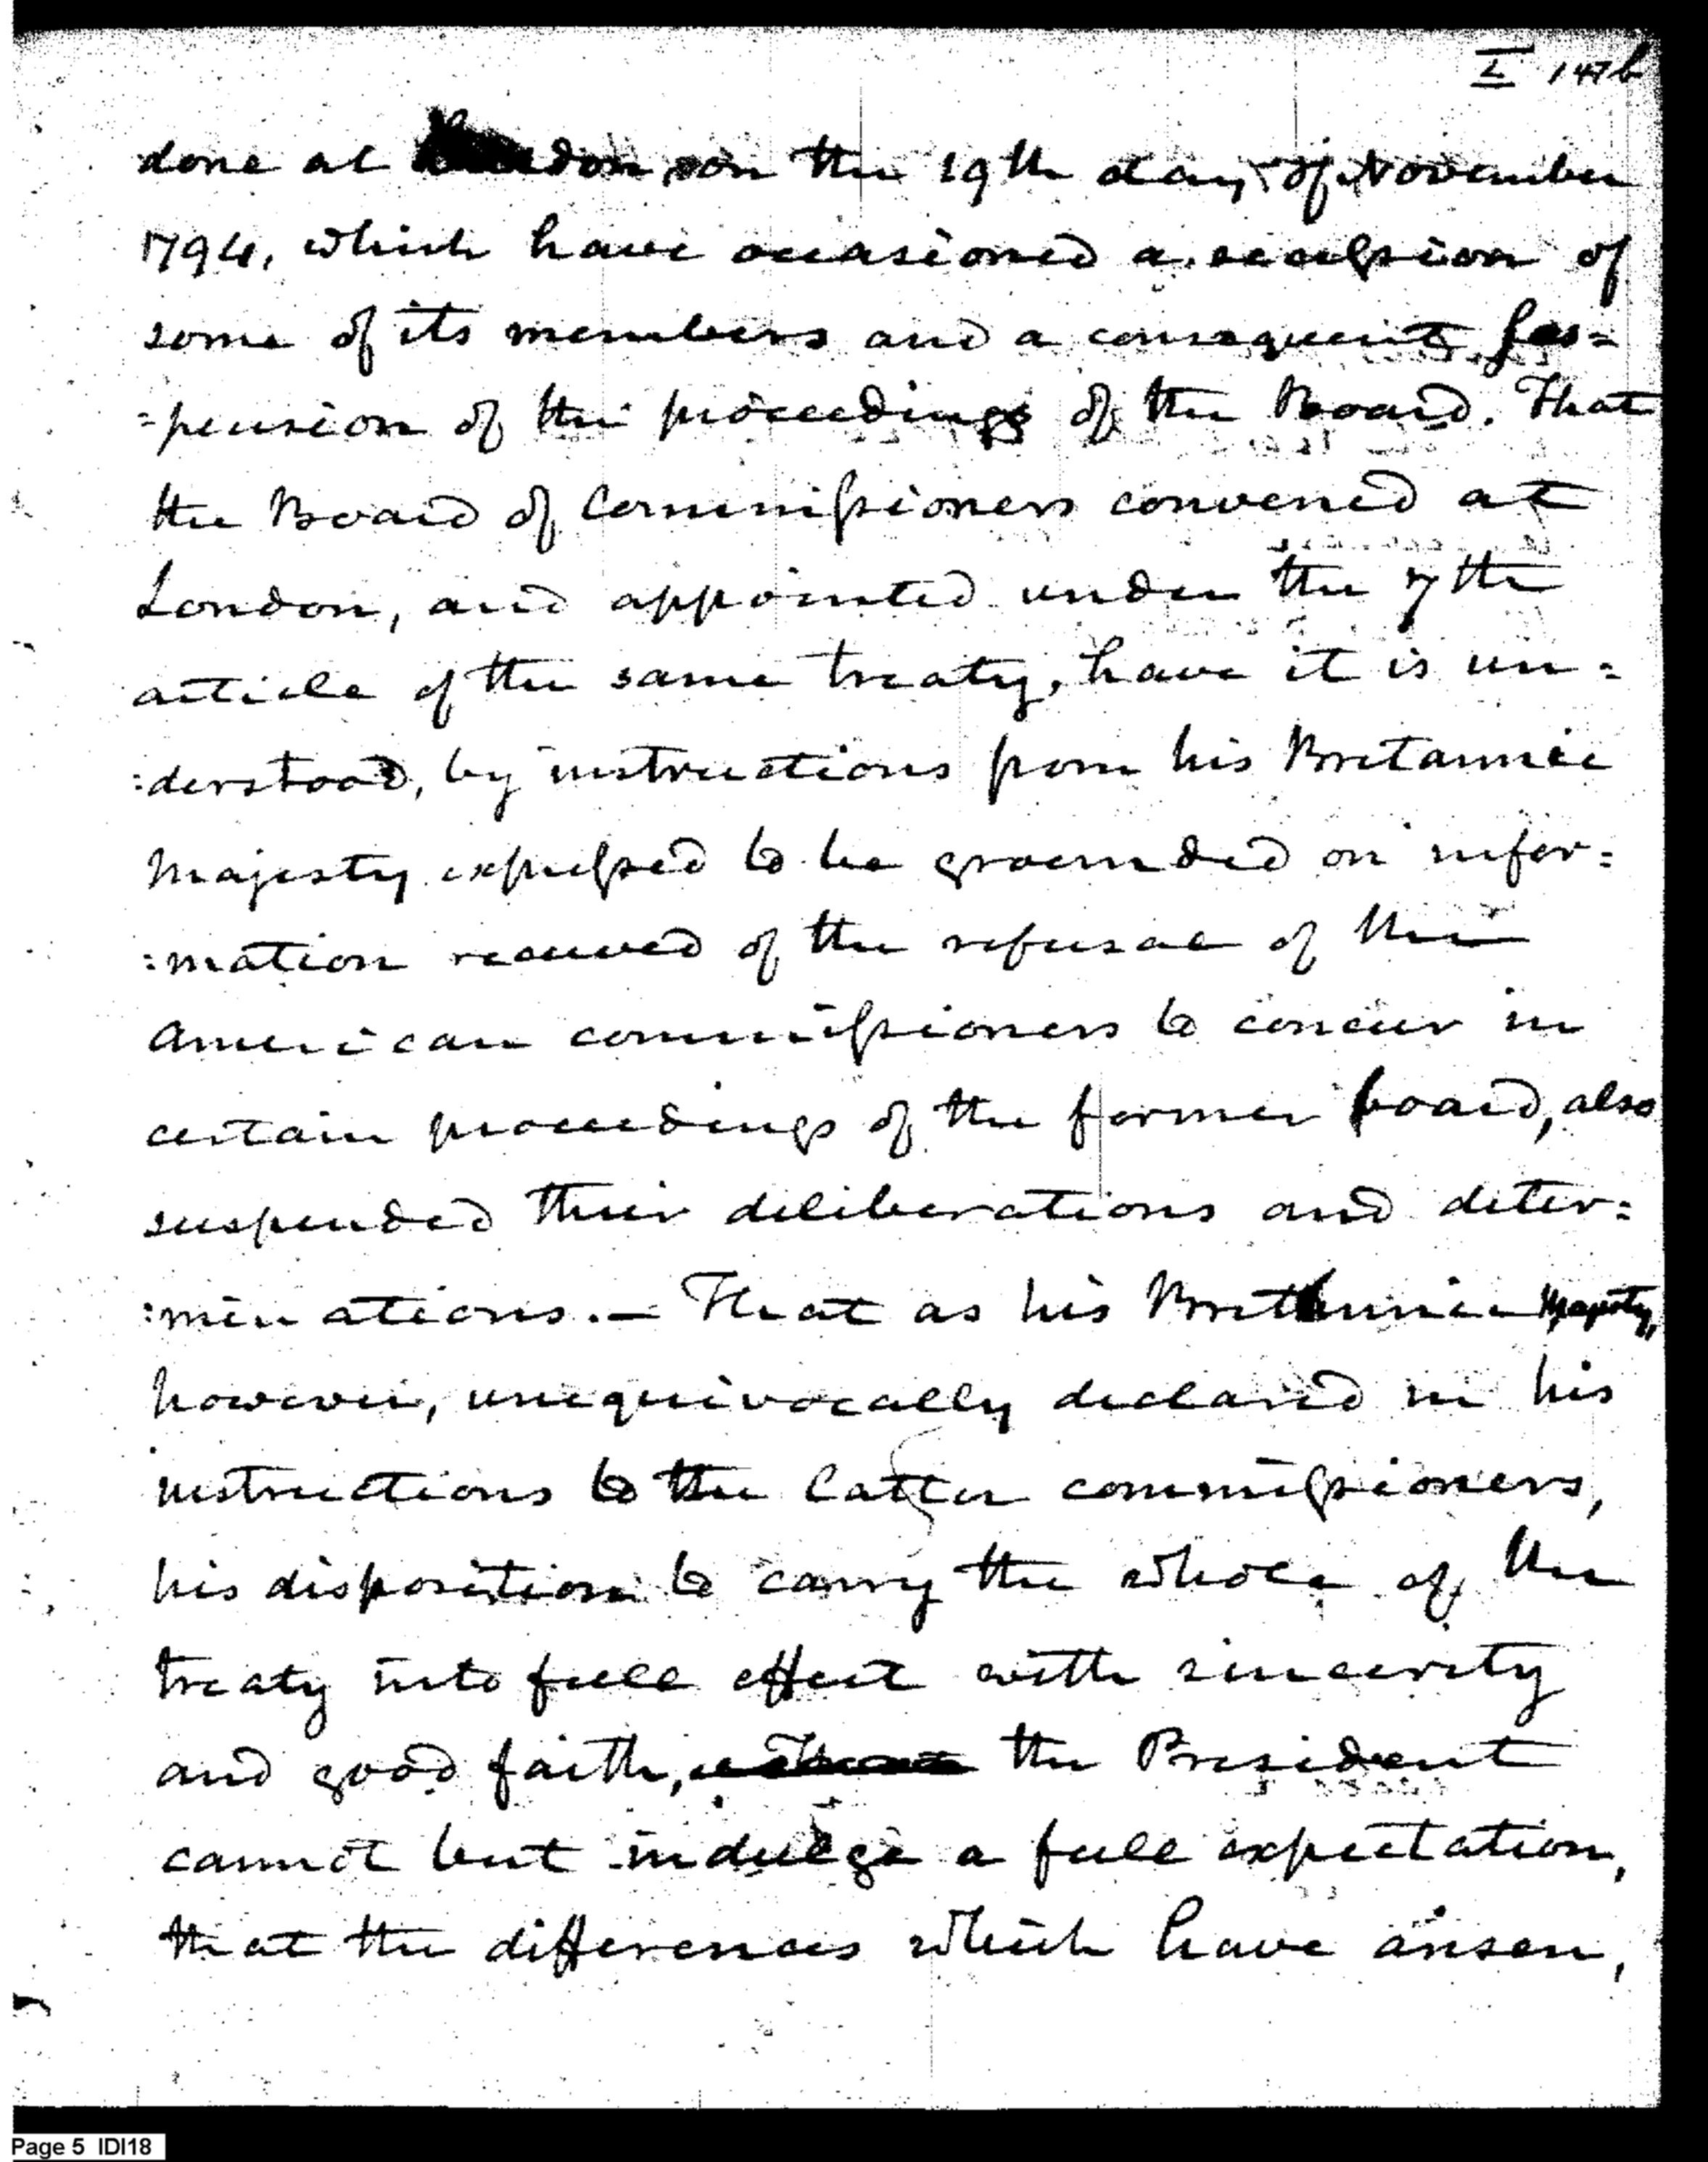 I 147b
done at London, on the 19th day of November
1794, which have occasioned a secession of
some of its members and a consequent sus=
=pension of the proceedings of the Board. That
the Board of Commissioners convened at
London, and appointed under the 7th
article of the same treaty, have it is un=
:derstood, by instructions from his Britannic
Majesty expressed to be grounded on infor=
:mation received of the refusal of the
American commissioners to concur in
certain proceedings of the former board, also
suspended their deliberations and deter=
:minations.— That as his Britannic Majesty,
however, unequivocally declared in his
instructions to the latter commissioners,
his disposition to carry the whole of the
treaty into full effect with sincerity
and good faith, the President
cannot but indulge a full expectation,
that the differences which have arisen,
Page 5 IDI18